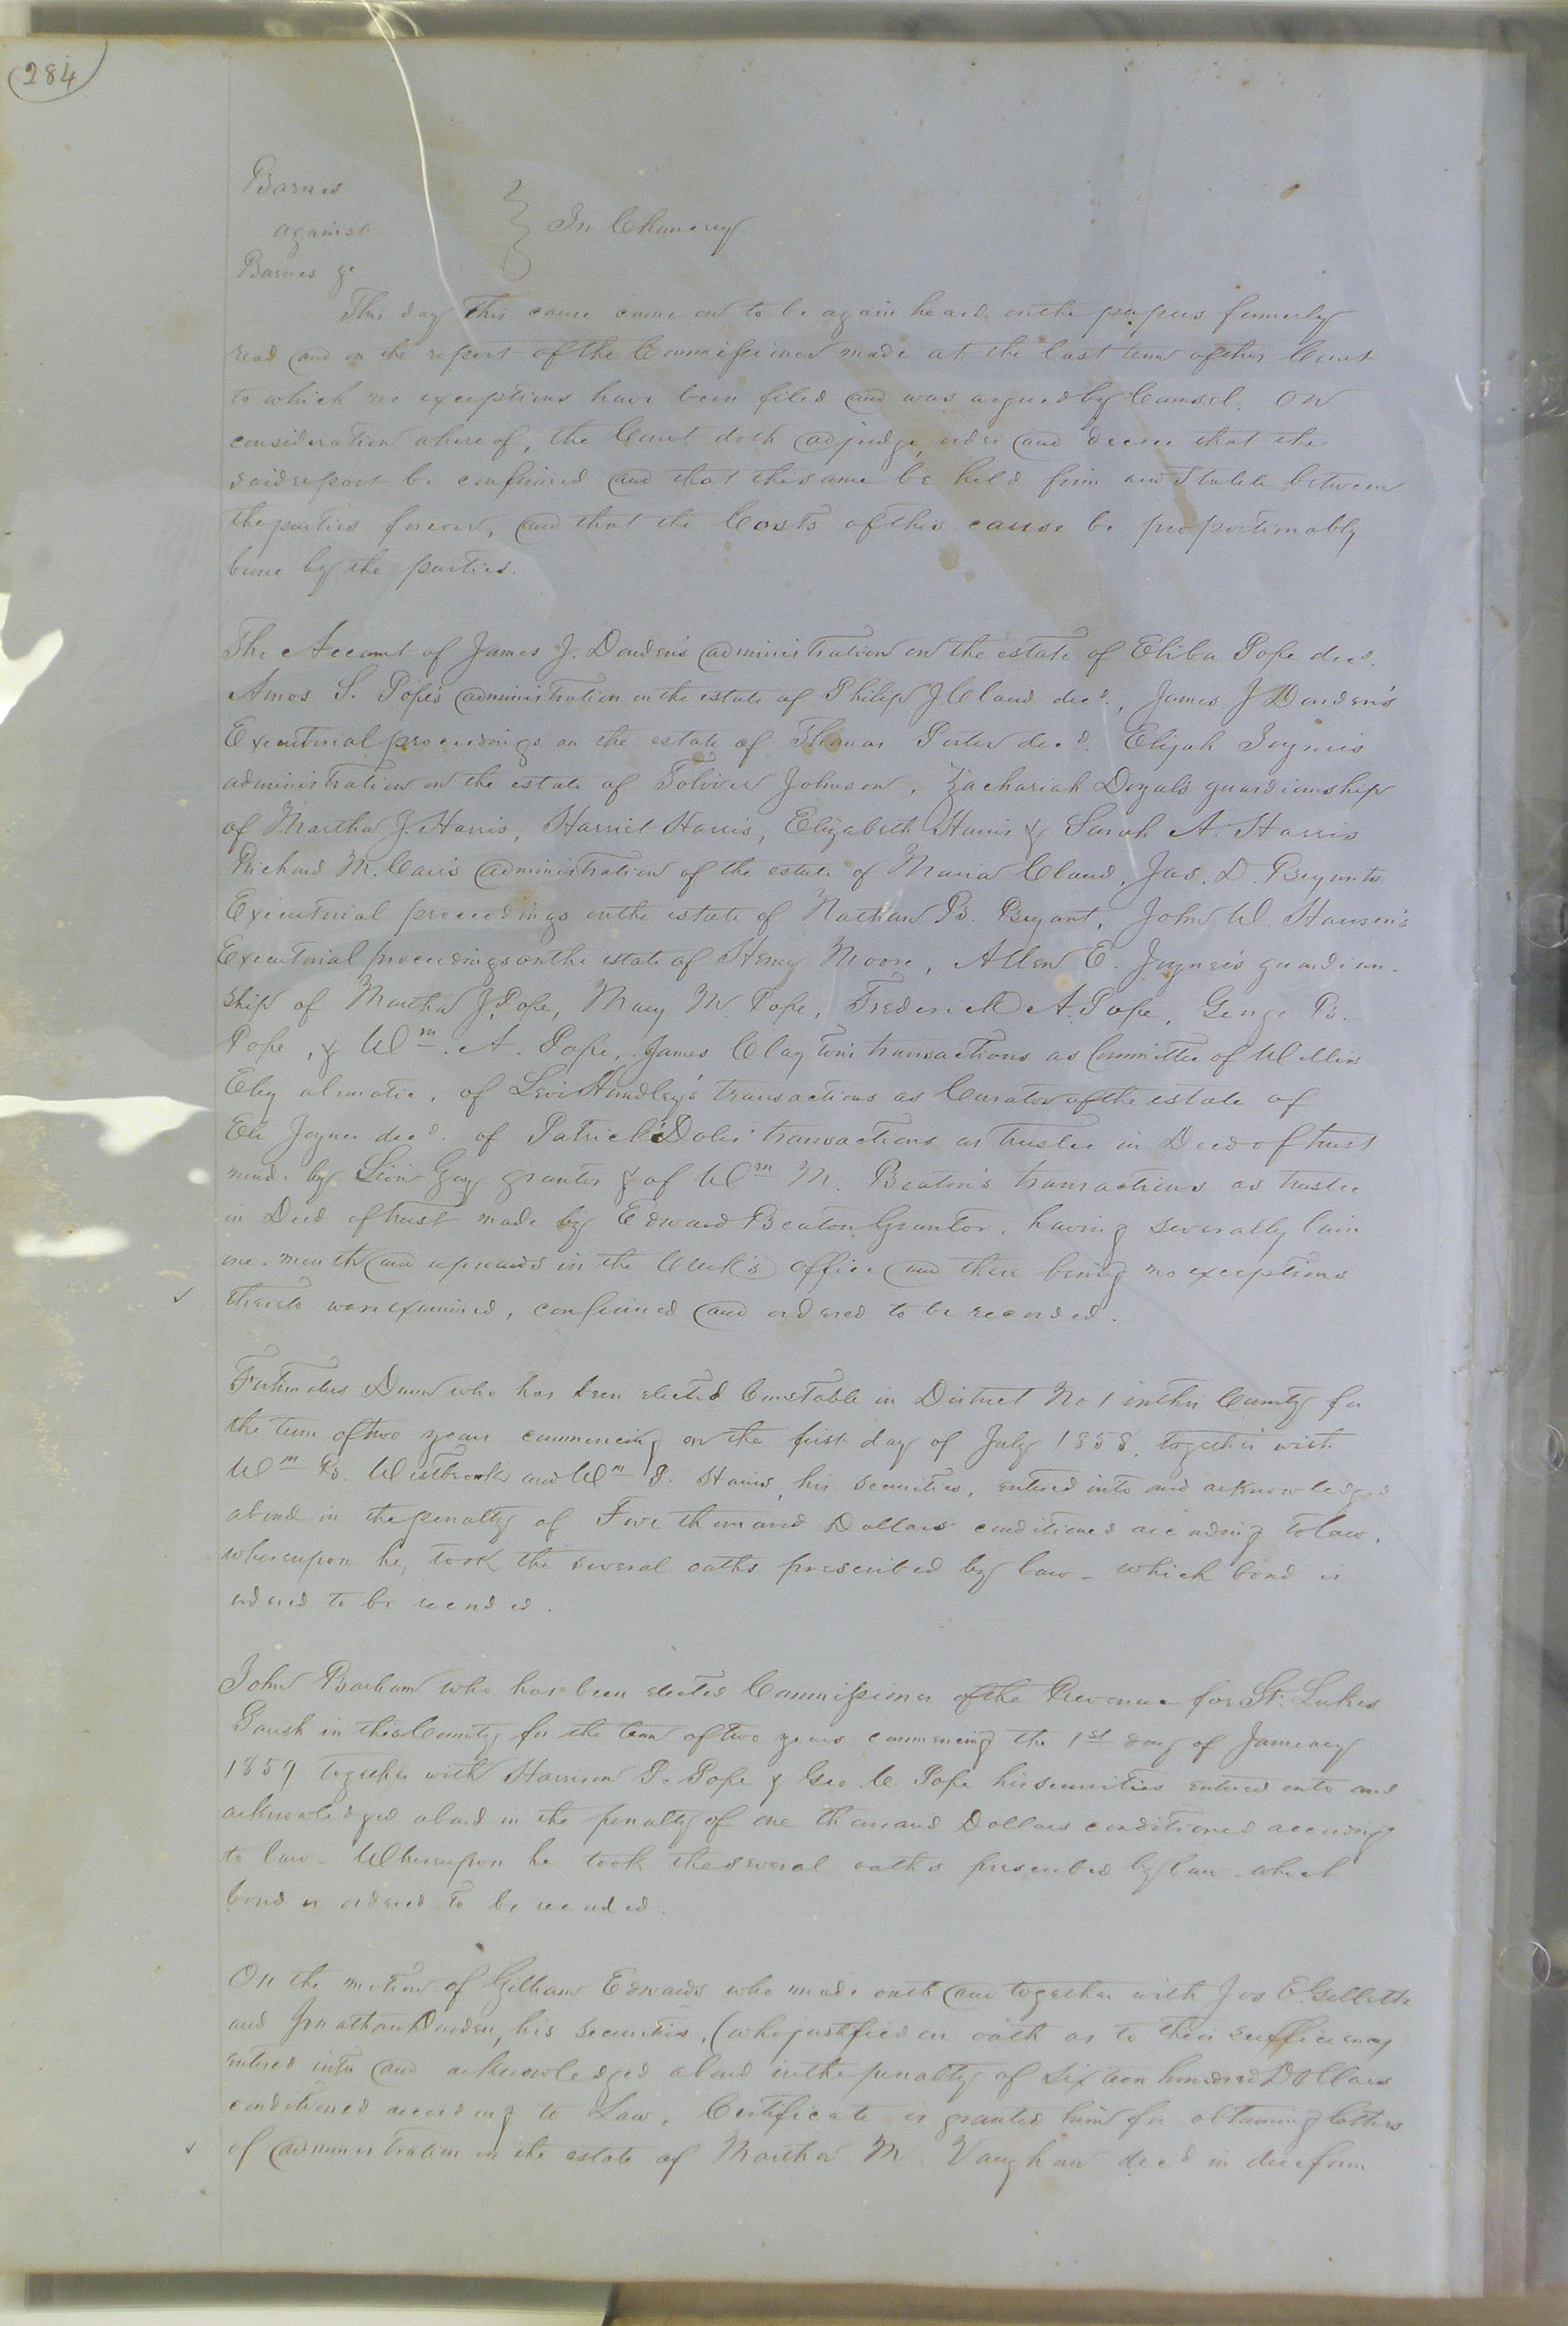 284
Barnes
against } In Chancery
Barnes &c
This day this cause came on to be again heard on the papers formerly
read and on the report of the Commissioner made at the last term of this Court
to which no exceptions have been filed and was argued by Counsel. On
consideration whereof, the Court doth adjudge, order and decree that the
said report be confirmed and that the same be held firm and stable between
the parties forever, and that the Costs of this cause be proportionably
borne by the parties.
The Account of James J. Darden's administration on the estate of Pope decd.
Amos S. Pope's administration on the estate of Philip J. Claud decd., James J Darden's
Executorial proceedings on the estate of Thomas Porter decd. Elijah Joyner's
administration on the estate of Toliver Johnson, Zachariah Doyals guardianship
of Martha J. Harris, Harriet Harris, Elizabeth Harris & Sarah A. Harris
Richard M. Carr's administration of the estate of Maria Claud, Jas. D. Bryants
Executorial proceedings on the estate of Nathan B. Bryant, John W. Hansen's
Executorial proceedings on the estate of Henry Moore, Allen E. Joyner's guardian-
ship of Martha J. Pope, Mary M. Pope, Frederick A. Pope, George B.
Pope, & Wm. A. Pope, James Clayton's transactions as Committee of Willis
Eley a lunatic, of Levi Hundley's transactions as Curator of the estate of
Eli Joyner decd. of Patrick Doles' transactions as trustee in Deed of trust
made by Gay grantor & of Wm M. Beaton's transactions as trustee
in Deed of trust made by Edward Beaton Grantor, having severally lain
one month and upwards in the Clerk's office and there being no exceptions
thereto were examined, confirmed and ordered to be recorded.
Dunn who has been elected Constable in District No 1 in this County for
the term of two years commencing on the first day of July 1858, together with
Wm B. Westbrook and Wm Harris, his securities, entered into and acknowledged
a bond in the penalty of Five thousand Dollars conditioned according to law.
whereupon he, took the several oaths prescribed by law - which bond is
ordered to be recorded.
John Barham who has been elected Commissioner of the Revenue for St. Lukes
Parish in this County for the term of two years commencing the 1st day of January
1859 together with Harrison P. Pope & Geo. W Pope his securities entered into and
acknowledged a bond in the penalty of one thousand Dollars conditioned according
to law - Whereupon he took the several oaths prescribed by law - which
bond is ordered to be recorded.
On the motion of Gilliam Edwards who made oath and together with Jos E. Gillette
and Jonathan Darden, his securities, (who justified on oath as to their sufficiency
entered into and acknowledged a bond in the penalty of Sixteen hundred Dollars
conditioned according to Law, Certificate is granted him for obtaining letters
of administration on the estate of Martha M. Vaughan decd in due form